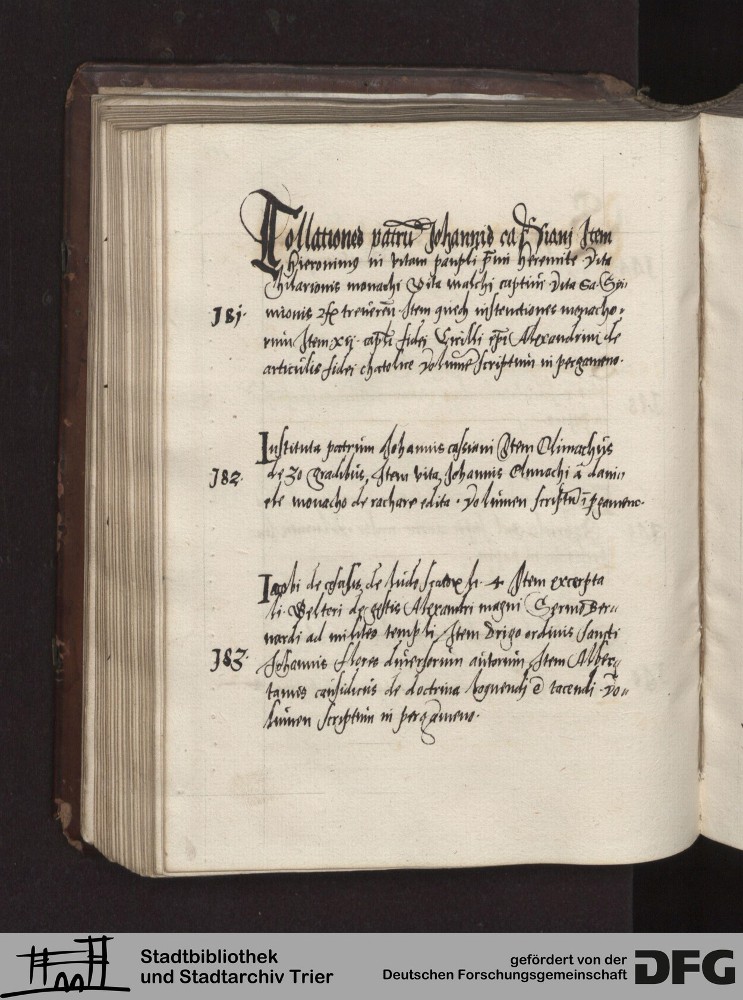 Collationes patrū Johannis cassiani Item
Hieronimus in vitam paupli p̄mi heremite Vita
Hilarionis monachi Vita malchi captiui Vita
J8j. Item institutiones monacho-
rum Item xij capl̄i fidei Cirilli ep̄i Alexandrini de
articulis fidei chatolice Volumē scriptum in pergameno.
Instituta patrum Johannis cassiani Item Climachus
J82. de 30 gradibus, Item vita Johannis Climachi a dani-
ele monacho de rachare edita. Volumen scriptū ī pgameno.
Jacobi de cesulis de ludo scacorx li. 4 Item excerpta
li. de gestis Alexandri magni Sermo Ber-
nardi ad milites templi Item Origo ordinis sancti
J83. Johannis flores diuersorum autorum Item Alber-
tanus causidicus de doctrina loquendi & tacendi Vo-
lumen scriptum in pergameno.
Stadtbibliothek
und Stadtarchiv Trier
gefördert von der
Deutschen Forschungsgemeinschaft
DFG